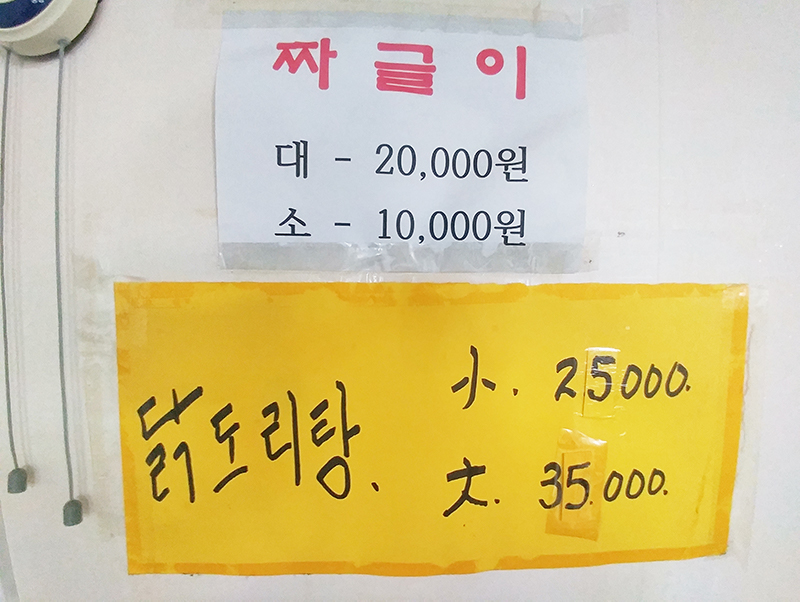 짜글이
대 - 20,000원
소 - 10,000원
닭도리탕.
小. 25000.
大. 35.000.